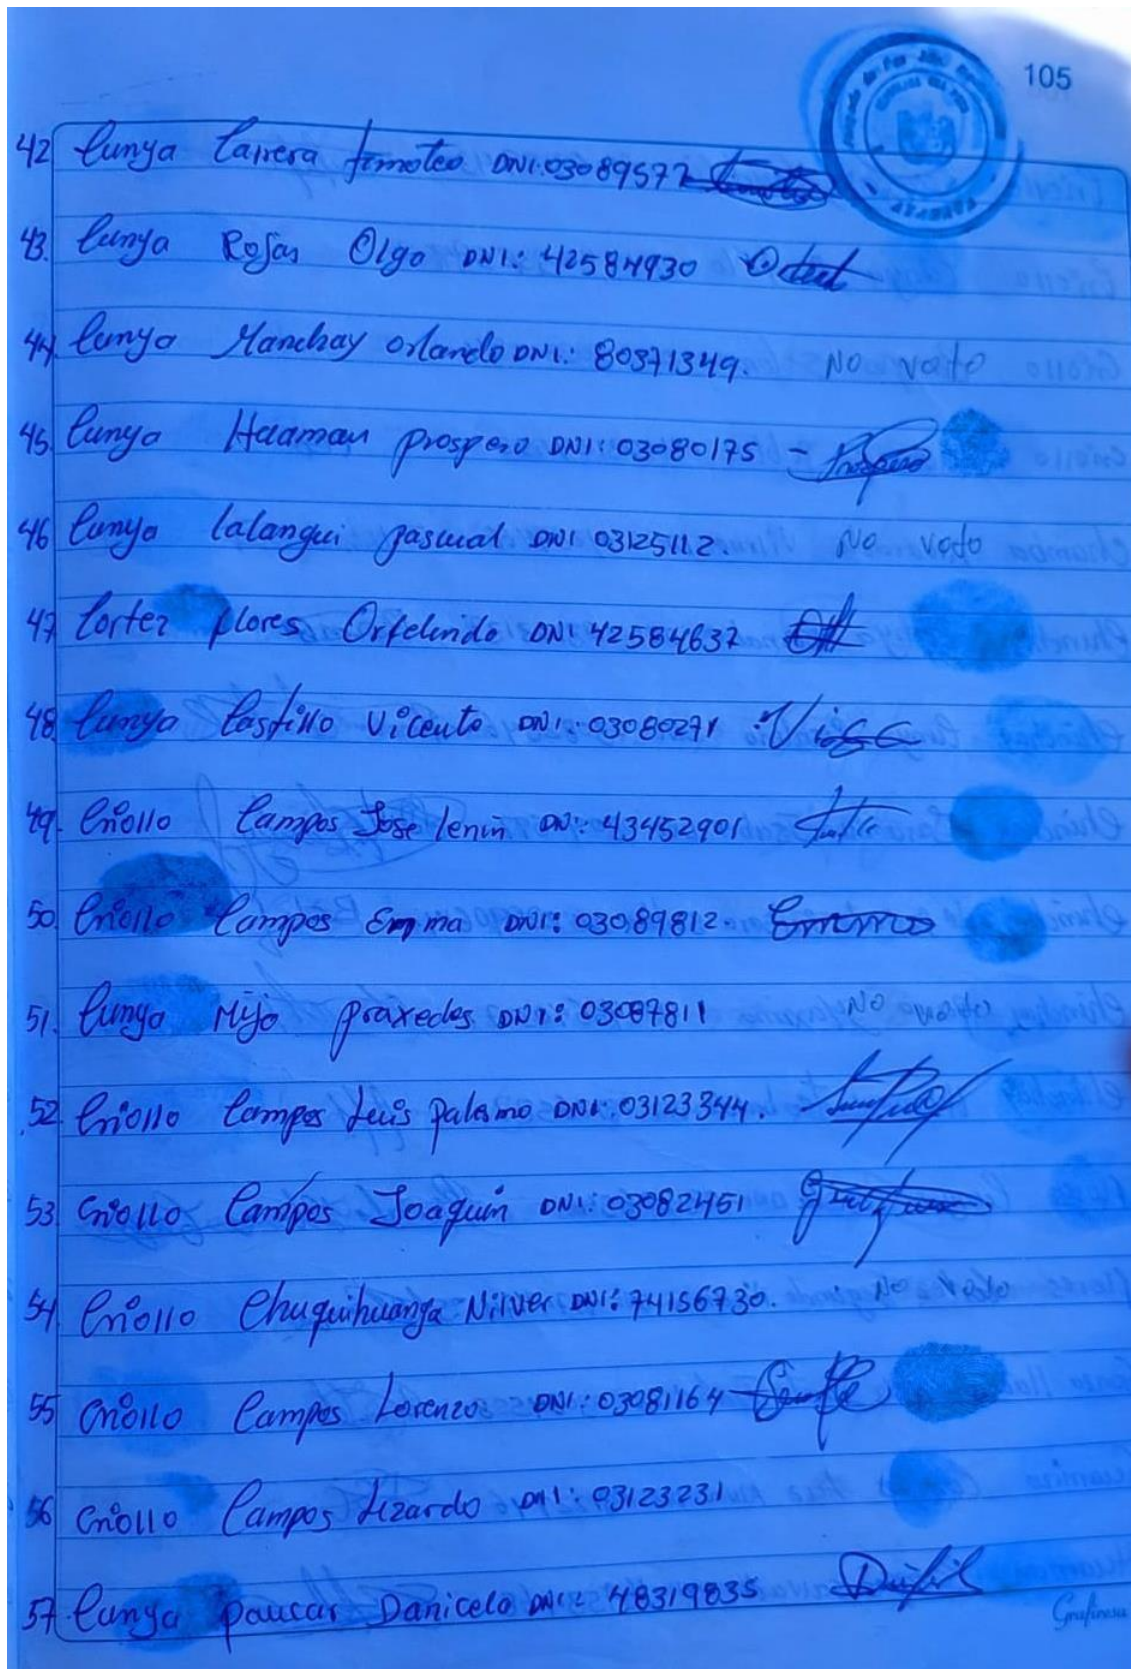 105
42 Cunya Carrera timoteo DNI: 03089577
43. Cunya Rojas Olga DNI: 42584930
44 Cunya Manchay orlando DNI: 80371349. No voto
45 Cunya Huaman prospero DNI: 03080175 - Prospero
46 Cunya Calangui pascual DNI 03125112. No voto
47 Cortez flores Orfelindo DNI 42584637
48 Cunya Castillo Vicente DNI: 03080271
49. Criollo Campos Jose lenin DNI: 43452901
50 Criollo Campos Emma DNI: 03089812. Emma
51. Cunya Mijo praxedes DNI: 03087811 No voto
52 Criollo Campos Luis palermo DNI: 03123344.
53 Criollo Campos Joaquin DNI: 03082451
54 Criollo Chuquihuanga Nilver DNI: 74156730. No voto
55 Criollo Campos Lorenzo DNI: 03081164
56 Criollo Campos Lizardo DNI: 03123231
57 Cunya paucar Danicela DNI: 48319835
Grafinesa